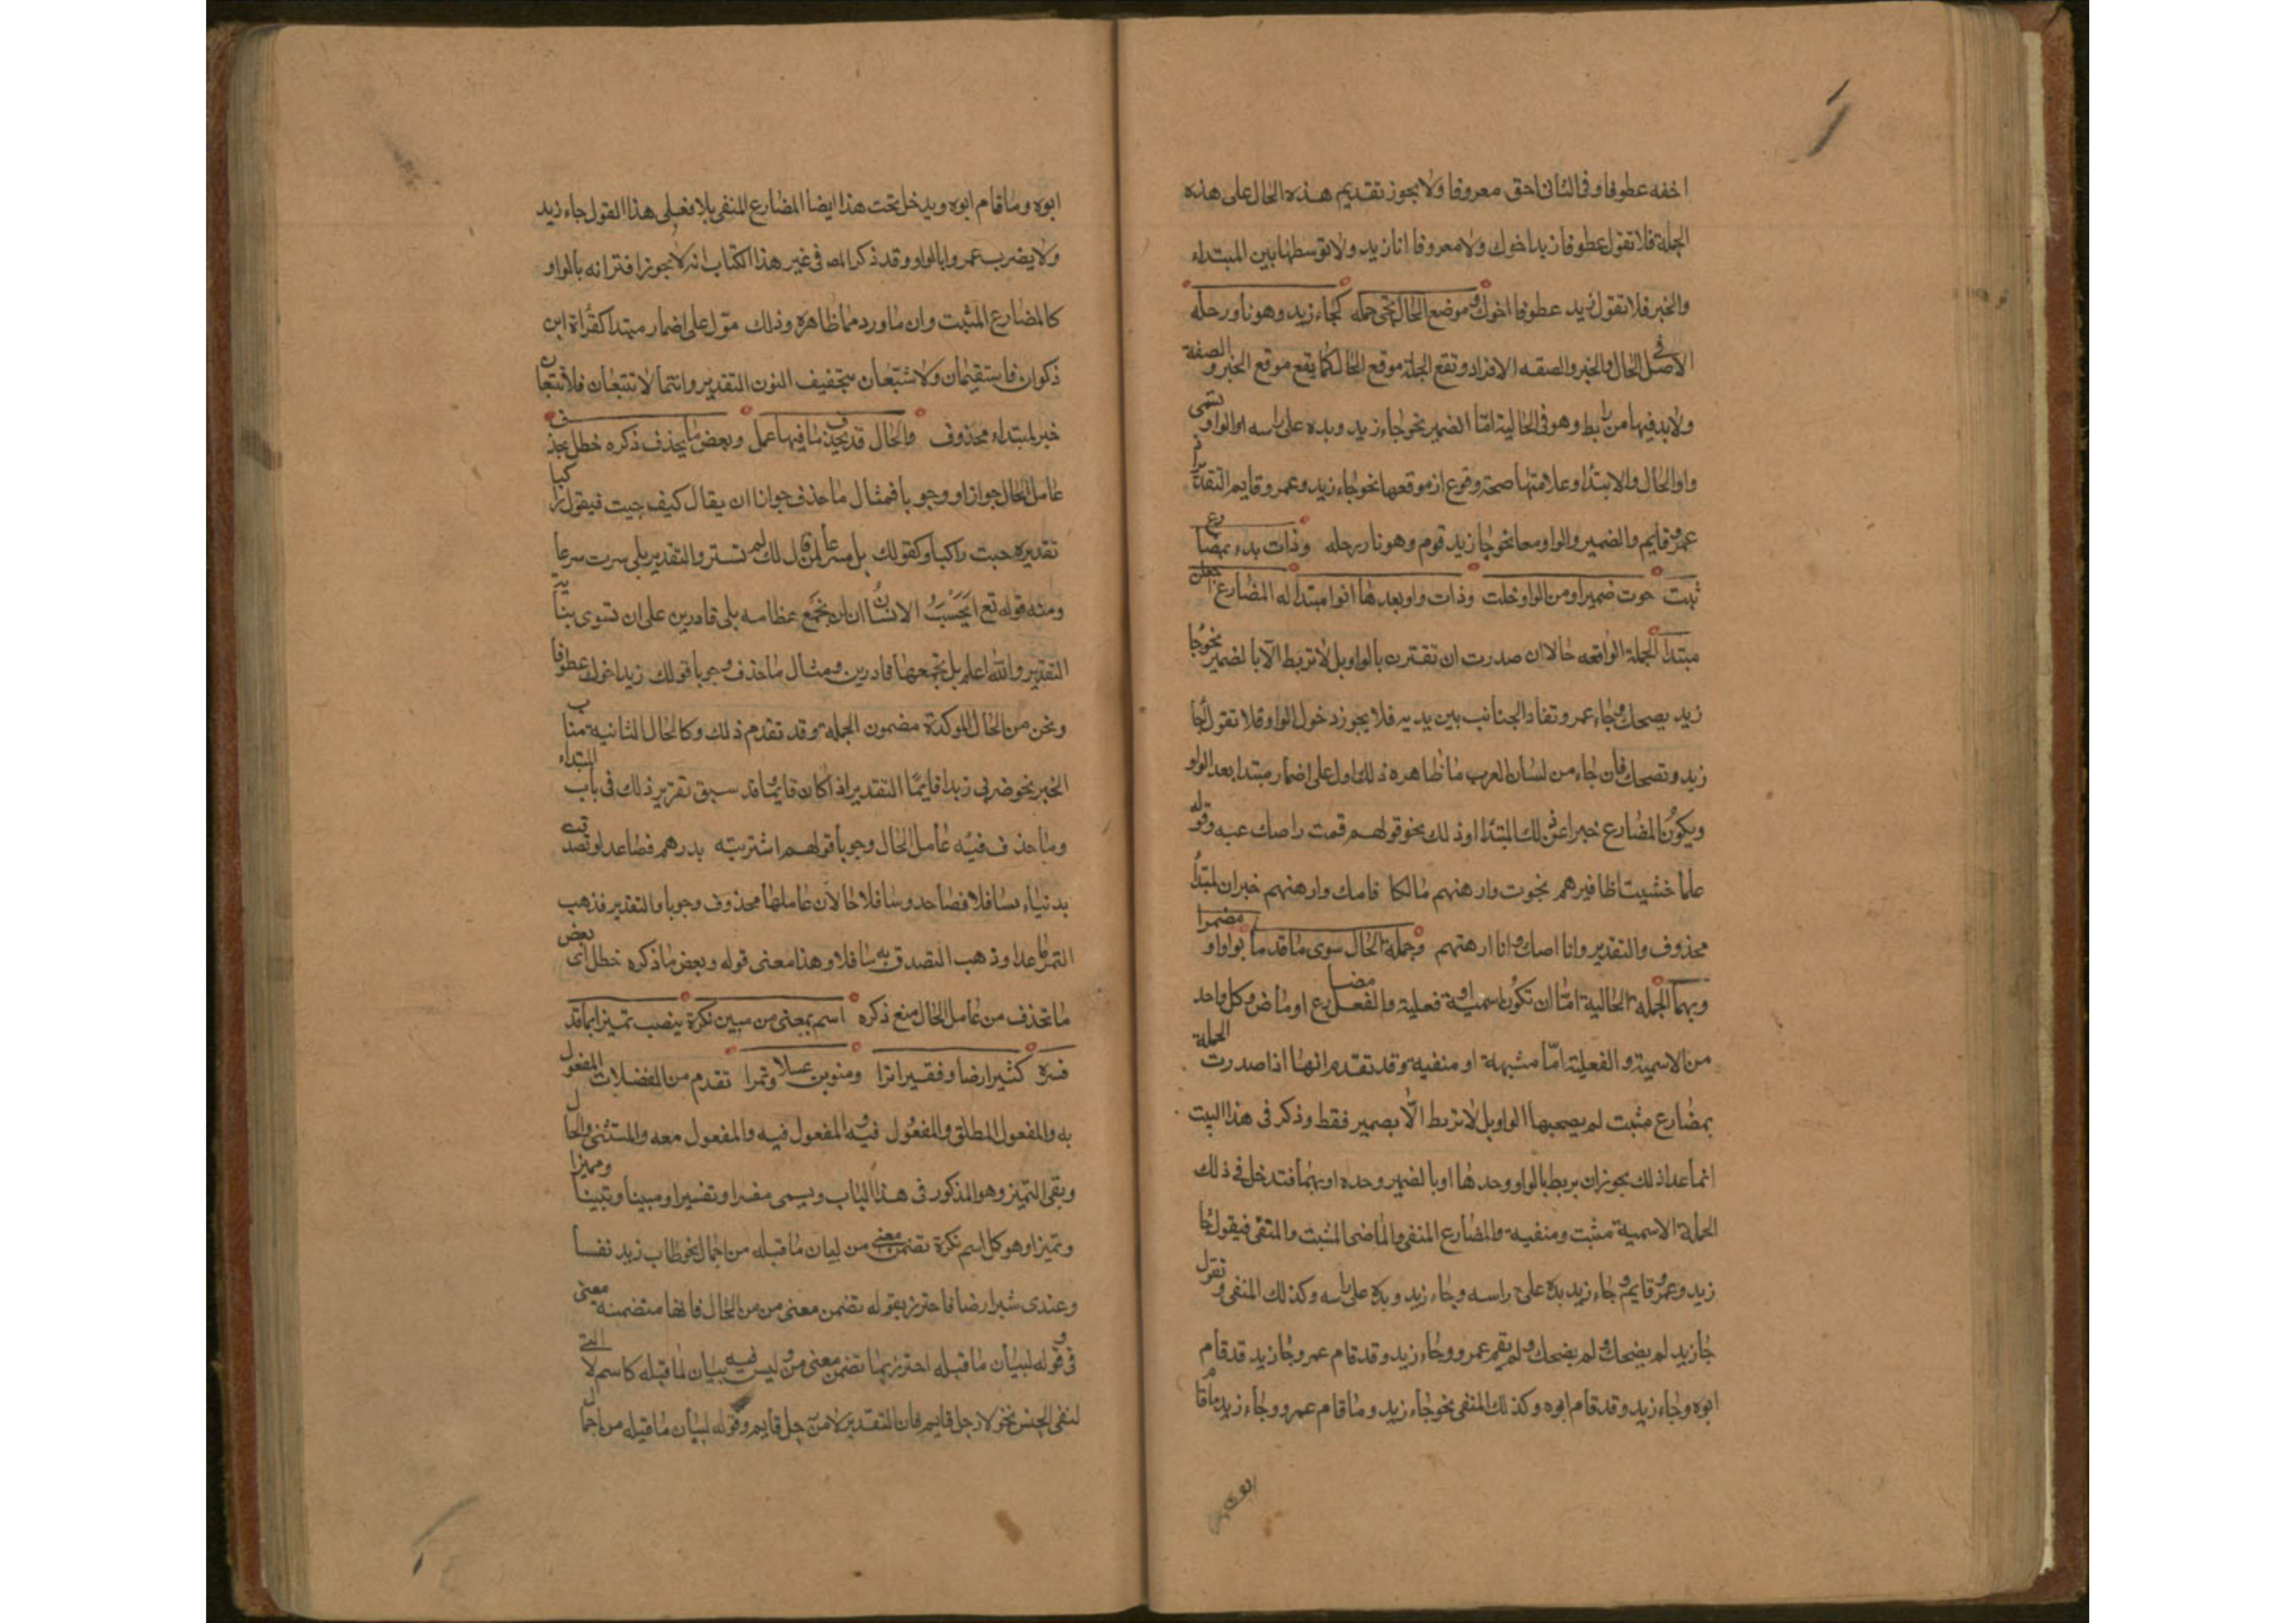 اخفه عطوفا وفى الثانى احق معروفا ولا يجوز تقديم هذه الحال على هذه
الجملة فلا تقول عطوفا زيد اخوك ولا معروفا انا زيد ولا توسطها بين المبتداء
والخبر فلا تقول زيد عطوفا اخوك وموضع الحال تجى جمله كجاء زيد وهو ناو رحله
الاصل فى الحال والخبر والصفه الافراد وتقع الجملة موقع الحال كما يقع موقع الخبر والصفة
ولا بد فيها من رابط وهو فى الحالية امّا الضمير نحو جاء زيد ويده على راسه او الواو وتسمى
واو الحال والابتداء وعلامتها صحة وقوع اذ موقعها نحو جاء زيد وعمرو قايم التقدير اذ
عمرو قايم والضمير والواو معا نحو جا زيد قوم وهو ناو رحله وذات بدء بمضارع
ثبت حوت ضميرا ومن الواو خلت وذات واو بعدها انوا مبتدا له المضارع اجعلن
مبتدا الجملة الواقعه حالا ان صدرت ان تقترن بالواو بل لا تربط الا بالضمير نحو جا
زيد يضحك وجاء عمرو تقاد الجنائب بين يديه فلا يجوز دخول الواو فلا تقول جا
زيد ويضحك فان جاء من لسان العرب ما ظاهره ذلك اول على اضمار مبتدا بعد الواو
ويكون المضارع خبرا عن ذلك المبتدا وذلك نحو قولهم قمت واصك عينه وقوله
علما خشيت اظافيرهم نجوت وارهنهم مالكا فاصك وارهنهم خبران لمبتدأ
محذوف والتقدير وانا اصك وانا ارهنهم وجملة الحال سوى ما قدما بواو او مضمرا
وبهما الجمله الحالية امّا ان تكون اسمية او فعلية والفعل مضارع او ماض وكل واحد
من الاسمية والفعلية امّا مثبتة او منفية وقد تقدم انها اذا صدرت الجملة
بمضارع مثبت لم يصحبها الواو بل لا تربط الّا بضمير فقط وذكر فى هذا البيت
انما عدا ذلك يجوز ان يربط بالواو وحدها او بالضمير وحده او بهما فتدخل فى ذلك
الجملة الاسمية مثبت ومنفية والمضارع المنفى والماضى المثبت والمنفى فيقول جا
زيد وعمرو قايم وجاء زيد يده على راسه وجاء زيد ويده على راسه وكذلك المنفى وتقول
جا زيد لم يضحك ولم يضحك ولم يقم عمرو وجاء زيد وقد قام عمرو وجا زيد قد قام
ابوه وجاء زيد وقد قام ابوه وكذلك المنفى نحو جاء زيد وما قام عمرو وجاء زيد ما قام
ابوه وما قام ابوه ويدخل تحت هذا ايضا المضارع المنفى بلا فعلى هذا القول جاء زيد
ولا يضرب عمروا بالواو وقد ذكر المص فى غير هذا الكتاب انه لا يجوز اقترانه بالواو
كالمضارع المثبت وان ما ورد مما ظاهره وذلك موّل على اضمار مبتدا كقراة ابن
ذكوان فاستقيمان ولا تتبعان بتخفيف النون التقدير وانتما لا تتبعان فلا تتبعان
خبر لمبتداء محذوف والحال قد يحذف ما فيها عمل وبعض ما يحذف ذكره حظل يحذف
عامل الحال جوازا ووجوبا فمثال ما حذف جوازا ان يقال كيف جيت فيقول راكبا
تقديره جيت راكبا وكقولك بل مسرعا لمن قال لك لم تستر والتقدير بلى سرت سرعا
ومنه قوله تع ايَحْسَبُ الانسان ان لن نجمع عظامه بلى قادرين على ان نسوى بنانه
التقدير والله اعلم بل نجمعها قادرين ومثال ما حذف وجوبا قولك زيد اخوك عطوفا
ونحن من الحال الموكدة مضمون الجملة وقد تقدم ذلك وكالحال الثانية مناب
الخبر نحو ضربى زيدا قايمًا التقدير اذا كان قايما وقد سبق تقرير ذلك فى باب المبتداء
وما حذف فيه عامل الحال وجوبا قولهم اشتريته بدرهم فصاعدا وتصدقت
بدنياء سافلا فصاعد وسافلا حالان عاملهما محذوف وجوبا والتقدير فذهب
التمر صاعدا وذهب التصدق به سافلا وهذا معنى قوله وبعض ما ذكره حظل اى بعض
ما تحذف من عامل الحال منع ذكره اسم بمعنى من مبين نكرة ينصب تميزا بما قد
فسره كشبر ارضا وقفيز برا ومنوين عسلا وتمرا تقدم من الفضلات المفعول
به والمفعول المطلق والمفعول فيه والمفعول فيه والمفعول معه والمستثنى والحال
وبقى التميز وهو المذكور فى هذا الباب ويسمى مفسرا وتفسيرا ومبينا وتبيينا ومميزا
وتميزا وهو كل اسم نكرة تضمن معنى من لبيان ما قبله من اجمال نحو طاب زيد نفسا
وعندى شبر ارضا فاحترز بقوله تضمن معنى من من الحال فانها متضمنة معنى
فى وقوله لبيان ما قبله احترز بما تضمن معنى من وليس فيه بيان لما قبله كاسم لا التى
لنفى الجنس نحو لا رجل قايم فان التقدير لا من رجل قايم وقوله لبيان ما قبله من اجمال